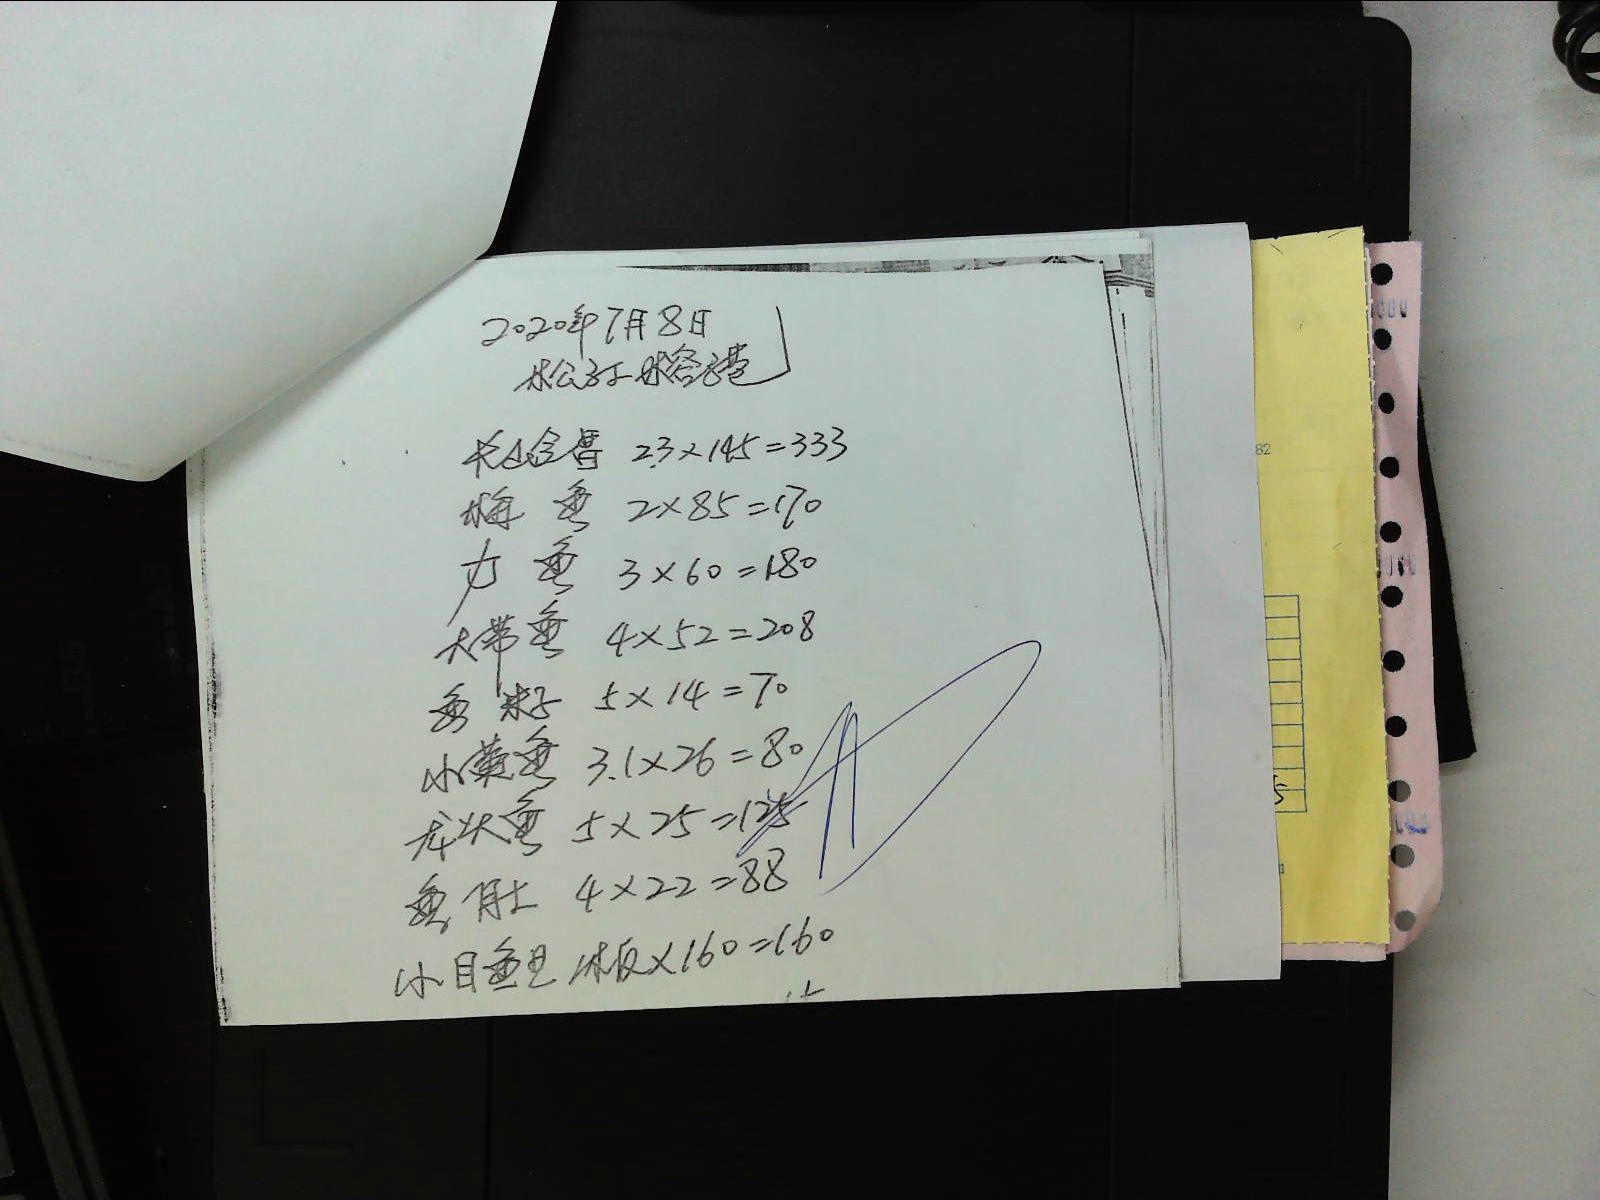 2020年7月8日
长山合昔 2.3×145=333
梅鱼 2×85=170
力鱼 3×60=180
大带鱼 4×52=208
鱼籽 5×14=70
小黄鱼 3.1×26=80
龙头鱼 5×25=125
鱼肚 4×22=88
小目鱼旦 1冰板×160=160
82